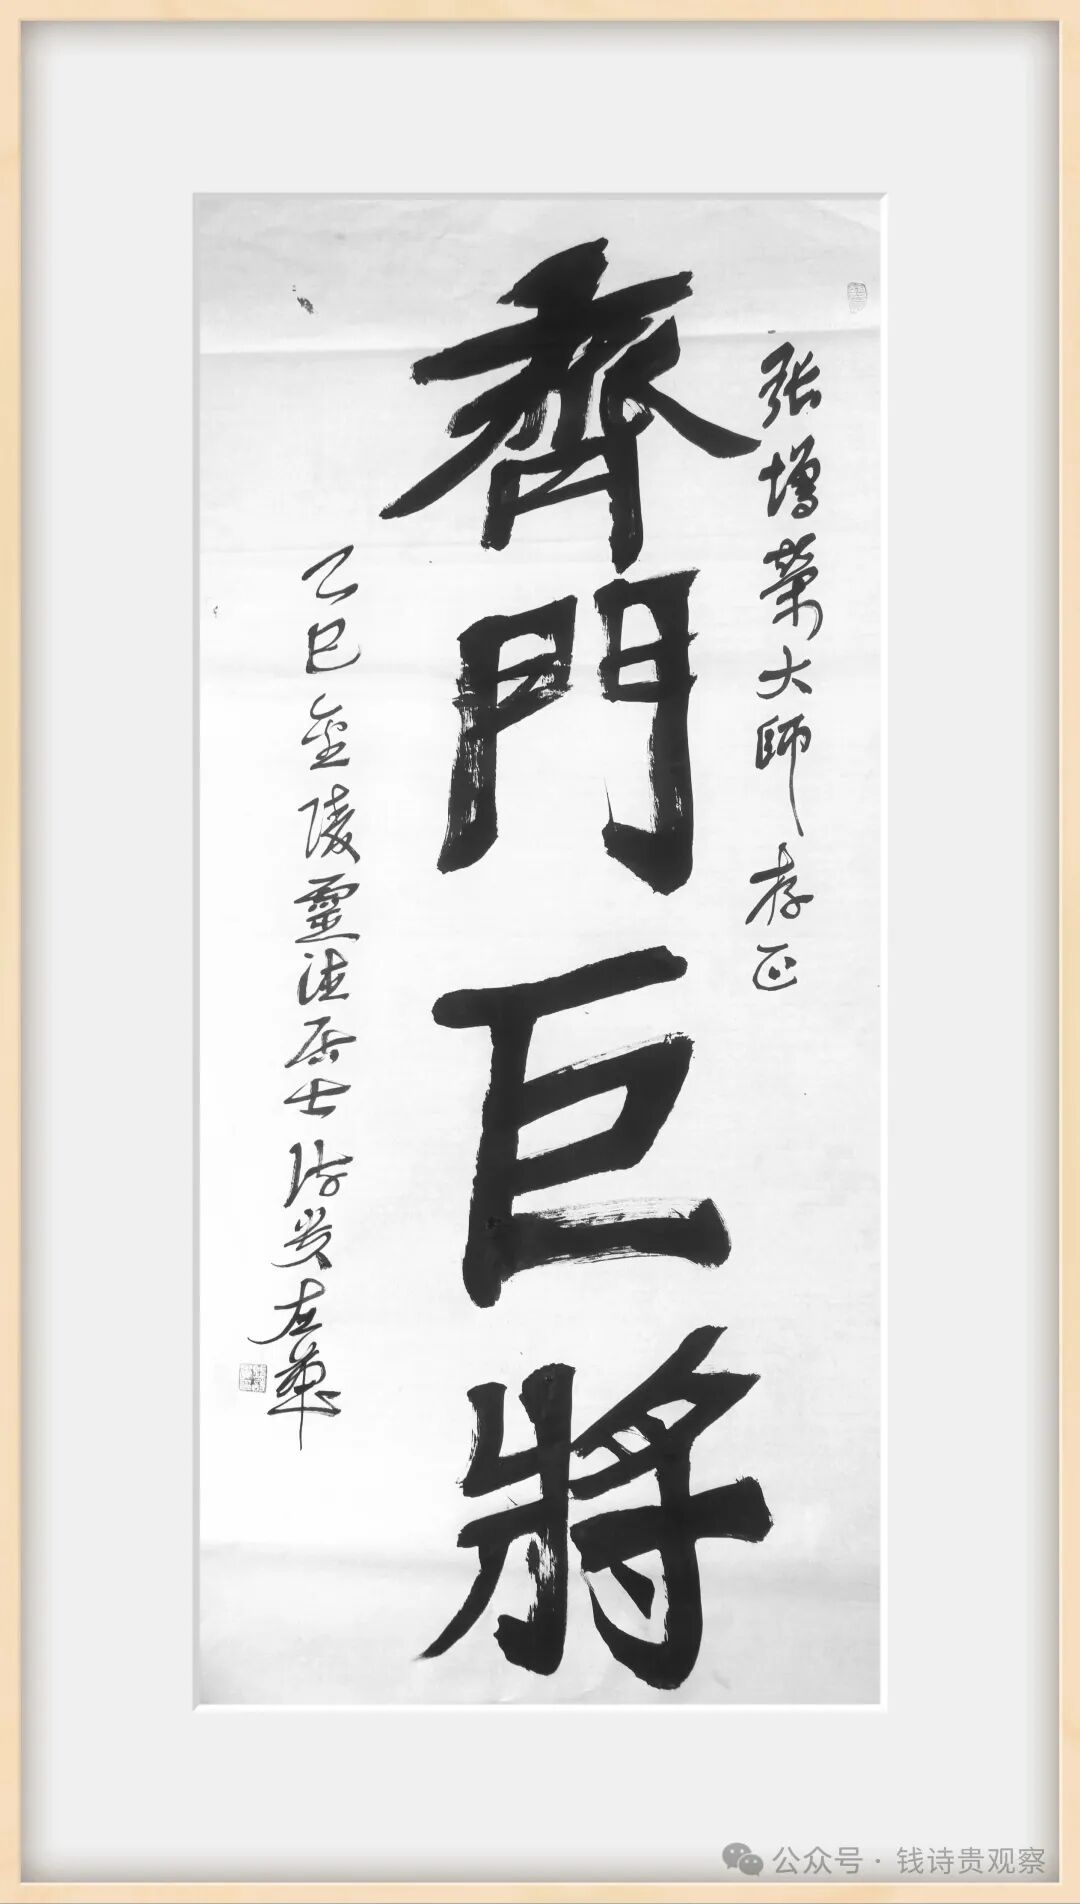 張增榮大師存正
齊門巨將
乙巳金陵靈法居士詩贵左筆
公众号·钱诗贵观察